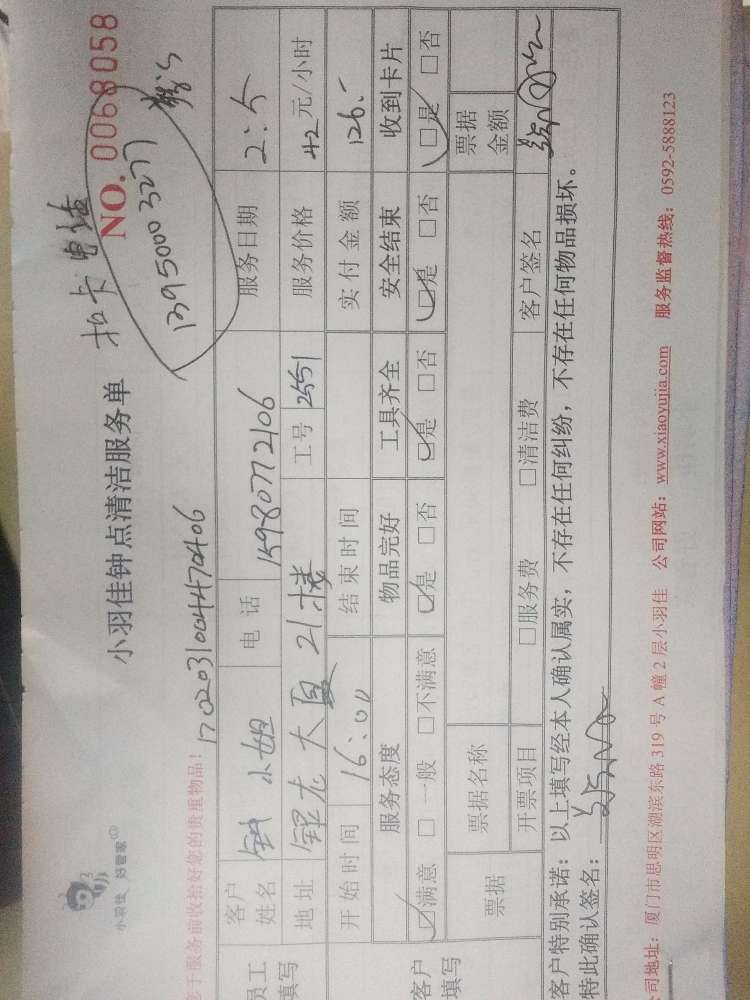 小羽佳 好管家
小羽佳钟点清洁服务单
扣卡电话
NO. 0068058
13950003277
于服务前收拾好您的贵重物品!
17022031004470406
员工填写
客户姓名 钟小姐 电话 15980772106 服务日期 2:5
地址 银龙大厦21楼 工号 2551 服务价格 42元/小时
开始时间 16:00 结束时间 实付金额 126.-
客户填写
服务态度 物品完好 工具齐全 安全结束 收到卡片
☑满意 □一般 □不满意 ☑是 □否 ☑是 □否 ☑是 □否 ☑是 □否
票据 票据名称 票据金额
开票项目 □服务费 □清洁费 客户签名
客户特别承诺:以上填写经本人确认属实,不存在任何纠纷,不存在任何物品损坏。
特此确认签名:
司地址:厦门市思明区湖滨东路 319 号 A 幢 2 层小羽佳 公司网站:www.xiaoyujia.com 服务监督热线:0592-5888123